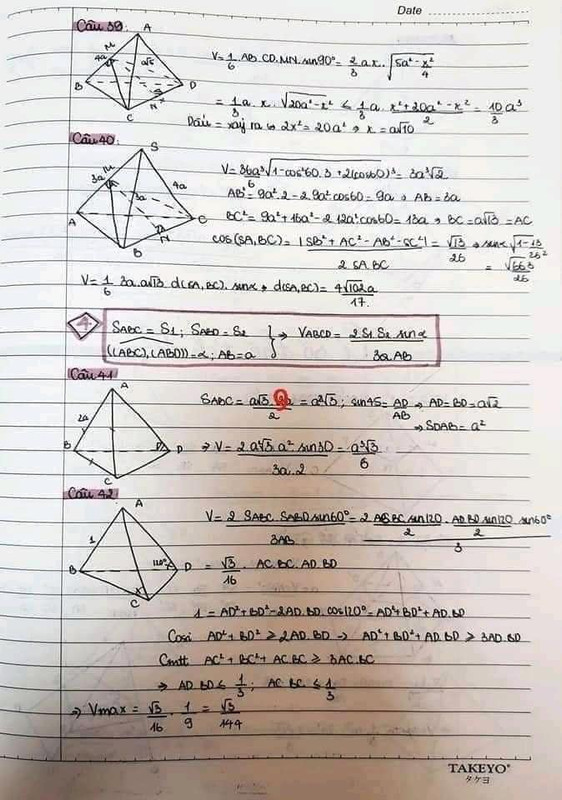 Date
Câu 39.
A
M
4a
a√5
B
D
N
x
C
V = 1/6 . AB. CD. MN. sin90° = 2/3 a x . √(5a² - x²/4)
= 1/3 a. x. √(20a² - x²) ≤ 1/3 a. (x² + 20a² - x²)/2 = 10/3 a³
Dấu = xảy ra ⇔ 2x² = 20a² → x = a√10
Câu 40
S
M
3a
4a
3a
A
C
B
N
V = 36a³/6 √(1 - cos²60.3 + 2(cos60)³) = 3a³√2
AB² = 9a².2 - 2.9a² cos60 = 9a → AB = 3a
BC² = 9a² + 16a² - 2.12a² cos60 = 13a → BC = a√13 = AC
cos(SA,BC) = |SB² + AC² - AB² - SC²| / 2 SA.BC = √13/26 → sinα √(1 - 13/26²) = √663/26
V = 1/6 3a.a√13 d(SA,BC). sinα → d(SA,BC) = 4√102a/17.
4
SABC = S1; SABD = S2
((ABC),(ABD)) = α; AB = a } → VABCD = 2S1 S2 sinα / 3a AB
Câu 41
A
2a
B
D
C
SABC = a√3. 2a/2 = a²√3; sin45 = AD/AB → AD = BD = a√2
→ SDAB = a²
→ V = 2 a²√3 a² sin30 / 3a.2 = a³√3/6
Câu 42
A
1
B
120°
D
C
V = 2 SABC. SABD sin60° / 3AB = 2 AC.BC sin120/2 . AD.BD sin120/2 . sin60° / 3
= √3/16 . AC. BC. AD. BD
1 = AD² + BD² - 2AD.BD. cos120° = AD² + BD² + AD.BD
Cosi AD² + BD² ≥ 2AD.BD → AD² + BD² + AD.BD ≥ 3AD.BD
Cmtt AC² + BC² + AC.BC ≥ 3AC.BC
→ AD.BD ≤ 1/3 ; AC.BC ≤ 1/3
→ Vmax = √3/16 . 1/9 = √3/144
TAKEYO®
タケヨ